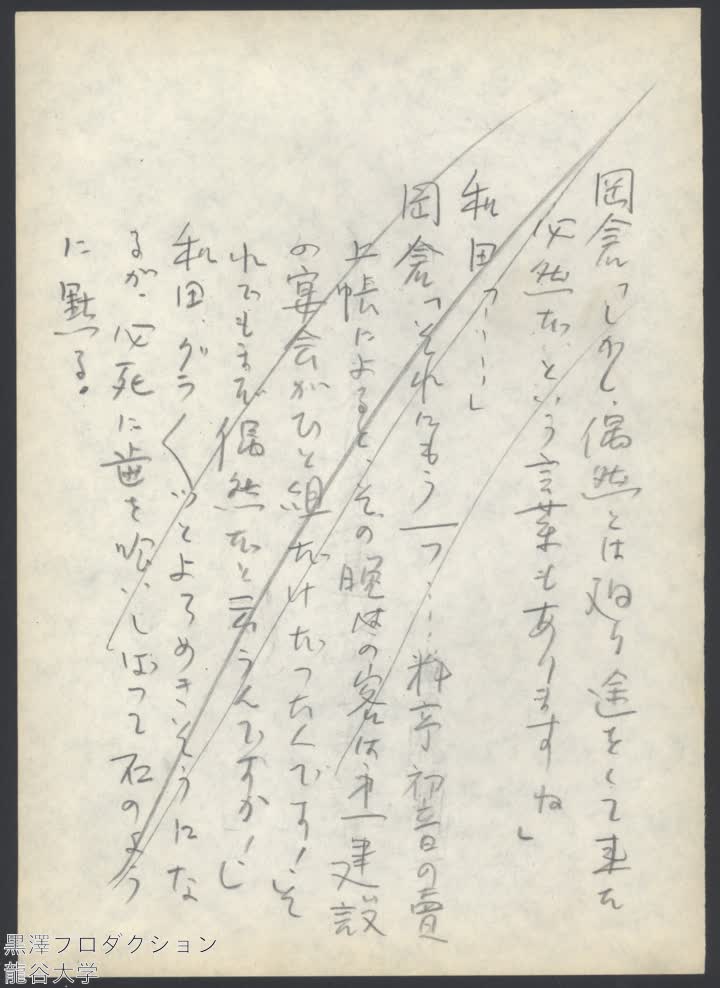 岡倉「しかし、偶然とは廻り途をして来た
必然だ、という言葉もありますね」
和田「、、、、」
岡倉「それにもう一つ……料亭初音の賣
上帳によると、その晩はの客は才一建設
の宴会がひと組だけだったんです！そ
れでもまだ偶然だと言うんですか！」
和田、グラ〱ッとよろめきそうにな
るが、必死に歯を喰いしばって石のよう
に黙る。
黒澤プロダクション
龍谷大学